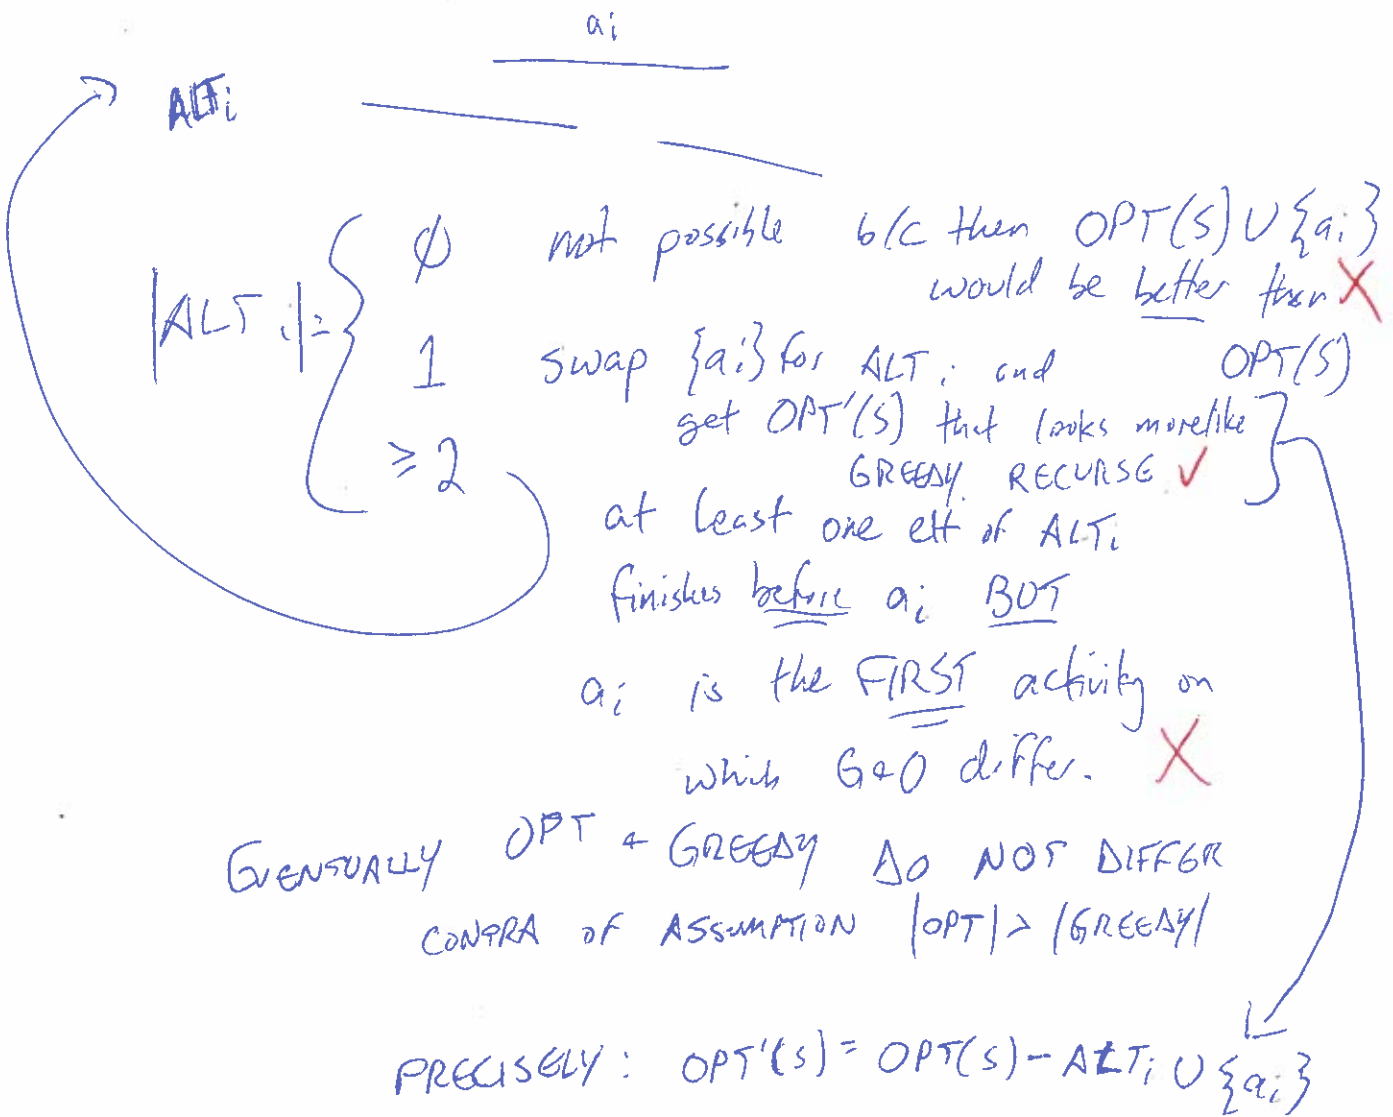 a_i
ALT_i
|ALT_i| = { ∅ not possible b/c then OPT(S) ∪ {a_i}
would be better than ✗
OPT(S)
1 swap {a_i} for ALT_i and
get OPT'(S) that looks more like
GREEDY. RECURSE ✓
≥2 at least one elt of ALT_i
finishes before a_i BUT
a_i is the FIRST activity on
which G+O differ. ✗
EVENTUALLY OPT + GREEDY DO NOT DIFFER
CONTRA OF ASSUMPTION |OPT| > |GREEDY|
PRECISELY: OPT'(S) = OPT(S) - ALT_i ∪ {a_i}